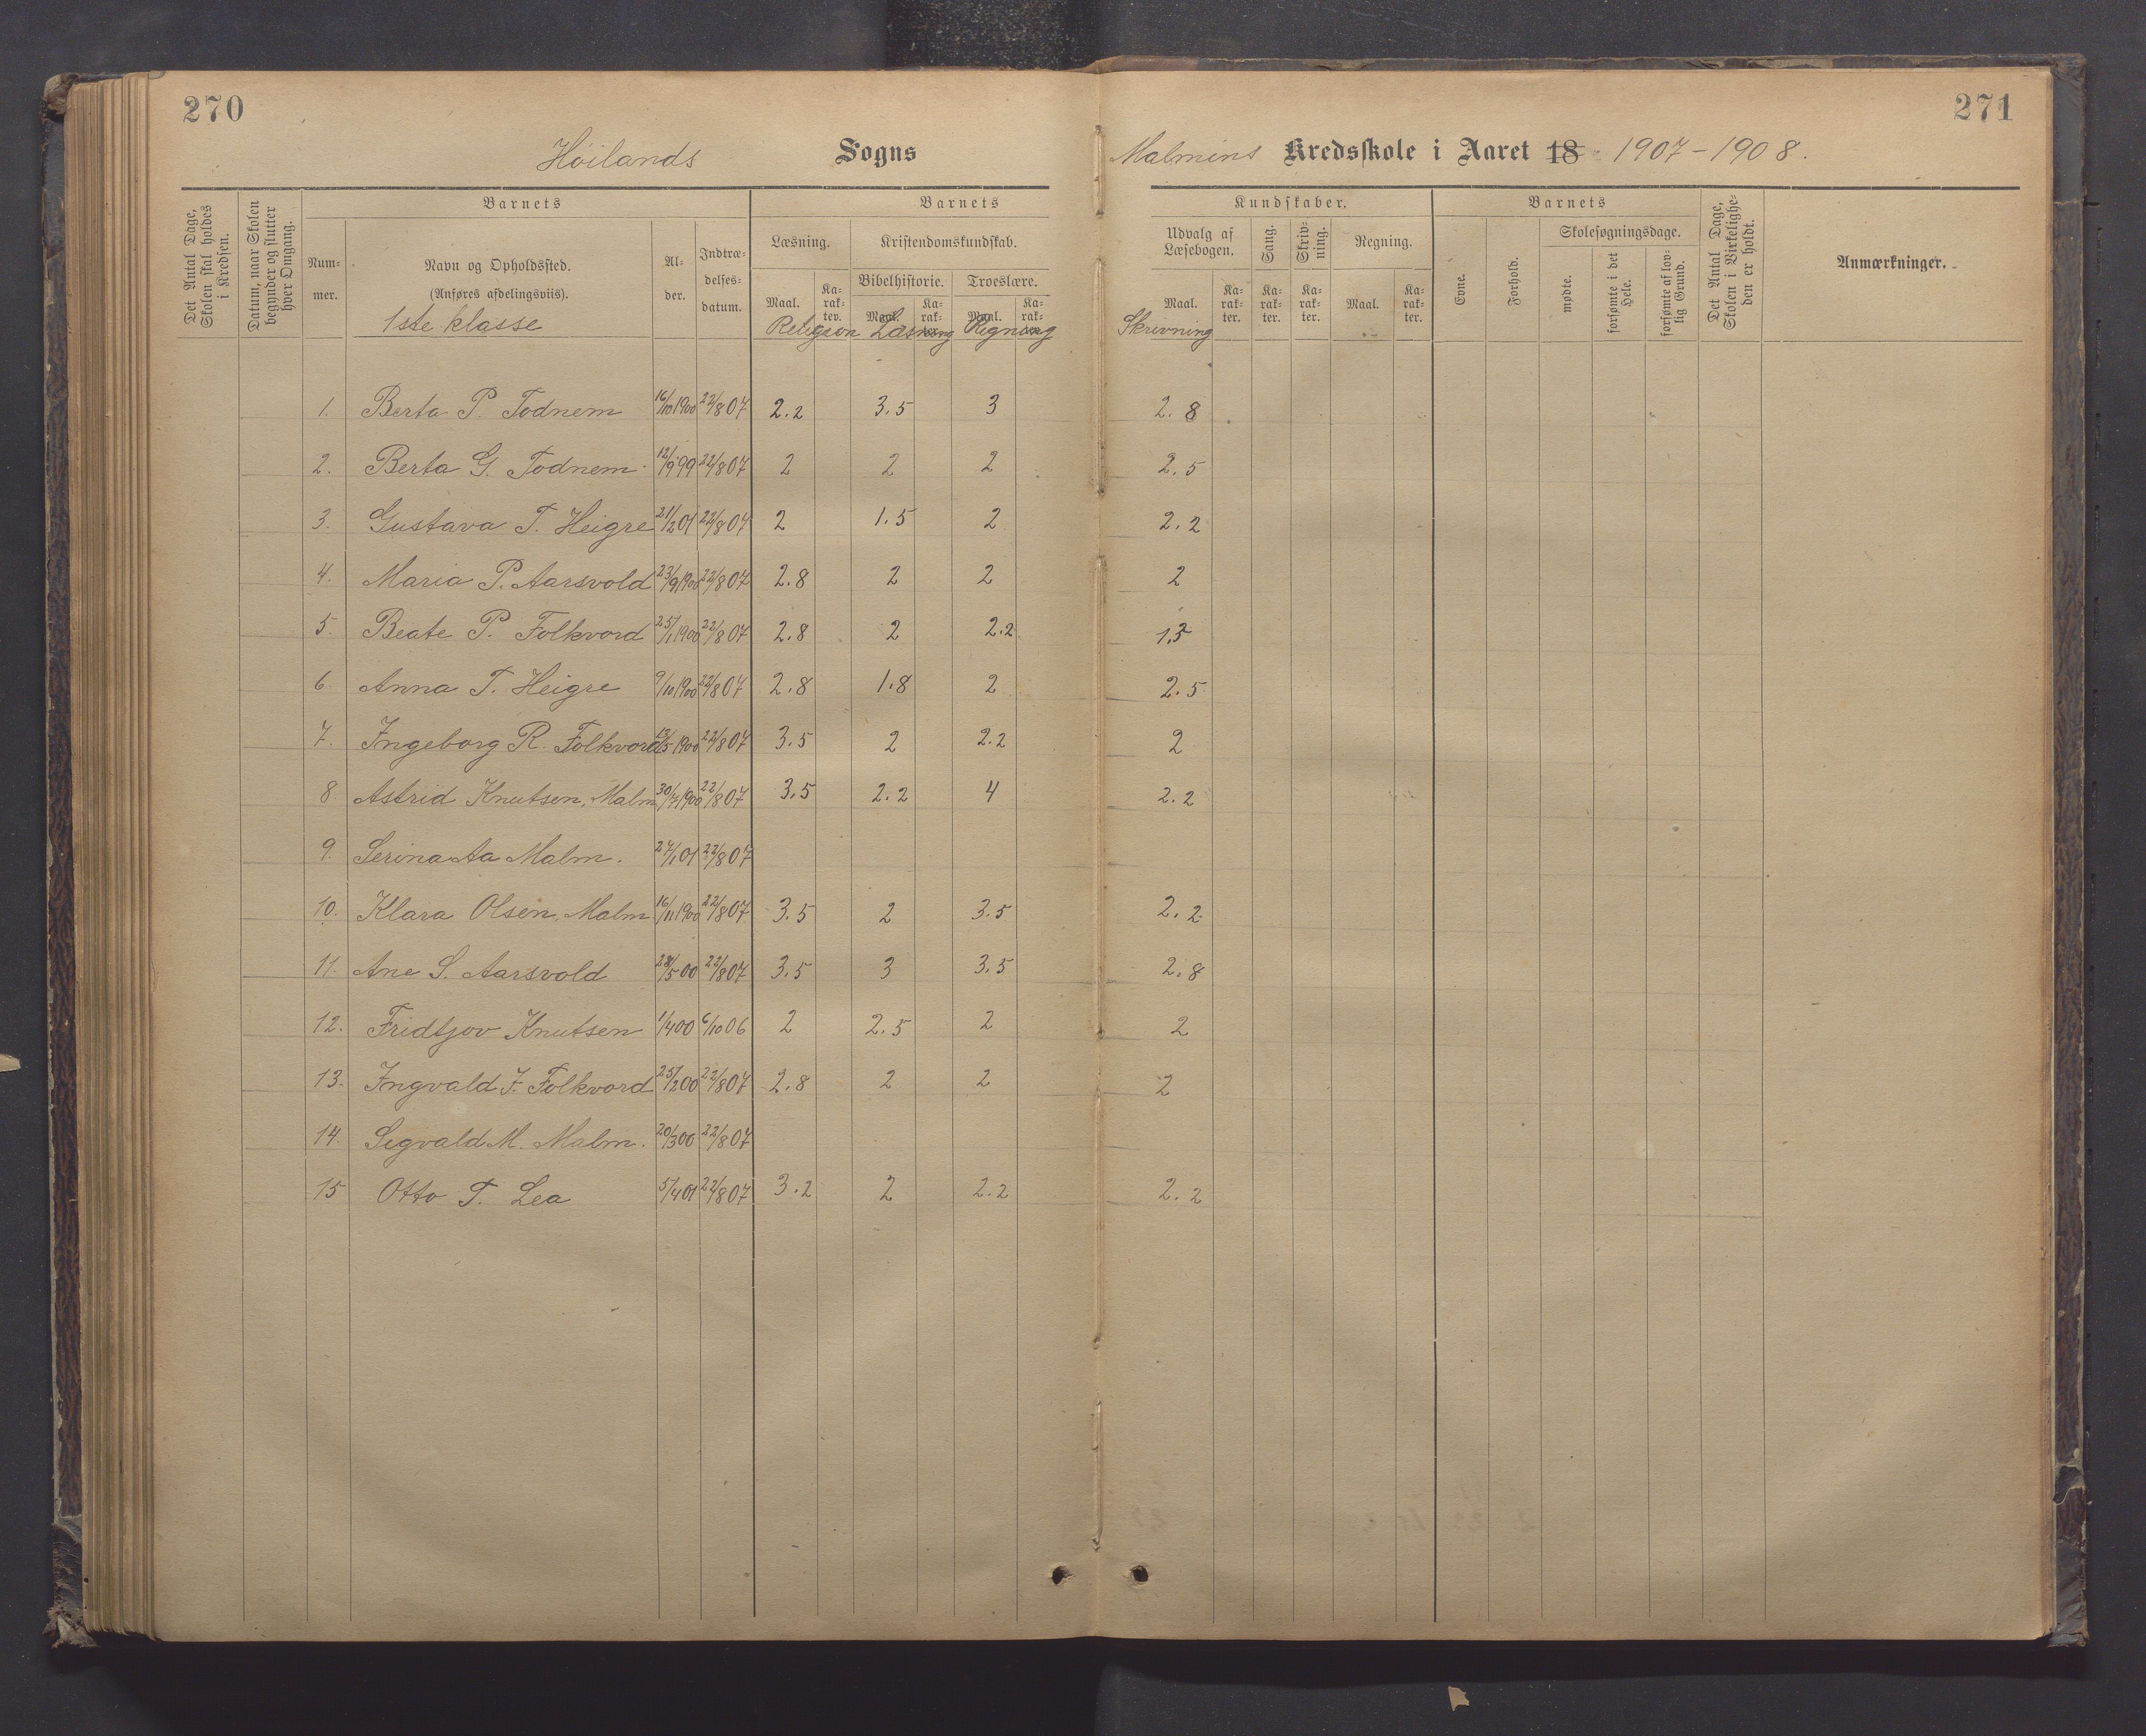 270
271
Höilands Sogns
Malmins Kredsskole i Aaret 18 1907-1908.
Det Antal Dage, Skolen skal holdes i Kredsen.
Datum, naar Skolen begynder og slutter hver Omgang.
Barnets
Barnets
Kundskaber.
Barnets
Num-mer.
Navn og Opholdssted.
(Anføres afdelingsviis).
Al-der.
Indtræ-delses-datum.
Læsning.
Kristendomskundskab.
Bibelhistorie.
Troeslære.
Maal.
Ka-rak-ter.
Maal.
Ka-rak-ter.
Maal.
Ka-rak-ter.
Udvalg af Læsebogen.
Sang.
Skriv-ning.
Regning.
Maal.
Ka-rak-ter.
Ka-rak-ter.
Ka-rak-ter.
Maal.
Ka-rak-ter.
Evne.
Forhold.
Skolesøgningsdage.
mødte.
forsømte i det Hele.
forsømte af lov-lig Grund.
Det Antal Dage, Skolen i Virkelighe-den er holdt.
Anmærkninger.
1ste klasse Religion Læsning Regning Skrivning
1. Berta P. Todnem 16/10 1900 22/8 07 2.2 3.5 3 2.8
2. Berta G. Todnem 12/9 99 22/8 07 2 2 2 2.5
3. Gustava T. Heigre 21/2 01 22/8 07 2 1.5 2 2.2
4. Maria P. Aarsvold 23/9 1900 22/8 07 2.8 2 2 2
5. Beate P. Folkvord 25/1 1900 22/8 07 2.8 2 2.2 1.5
6. Anna T. Heigre 9/10 1900 22/8 07 2.8 1.8 2 2.5
7. Ingeborg R. Folkvord 13/5 1900 22/8 07 3.5 2 2.2 2
8. Astrid Knutsen, Malm 30/7 1900 22/8 07 3.5 2.2 4 2.2
9. Serina Aa Malm. 27/1 01 22/8 07
10. Klara Olsen, Malm 16/11 1900 22/8 07 3.5 2 3.5 2.2
11. Ane S. Aarsvold 28/5 00 22/8 07 3.5 3 3.5 2.8
12. Fridtjov Knutsen 1/4 00 6/10 06 2 2.5 2 2
13. Ingvald J. Folkvord 25/2 00 22/8 07 2.8 2 2 2
14. Sigvald M. Malm. 20/3 00 22/8 07
15 Otto T. Lea 5/4 01 22/8 07 3.2 2 2.2 2.2